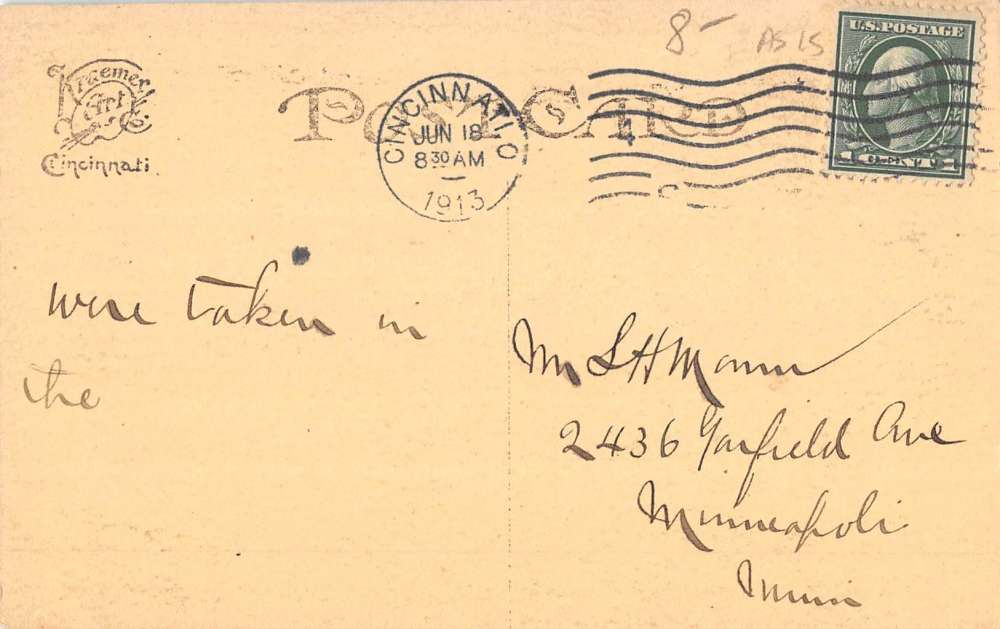 8- AS IS
U.S. POSTAGE
1 CENT 1
Kraemer
Art Co
Cincinnati
POST CARD
CINCINNATI, O
JUN 18
8 30 AM
1913
were taken in
the
Mr L H Mann
2436 Garfield Ave
Minneapolis
Minn